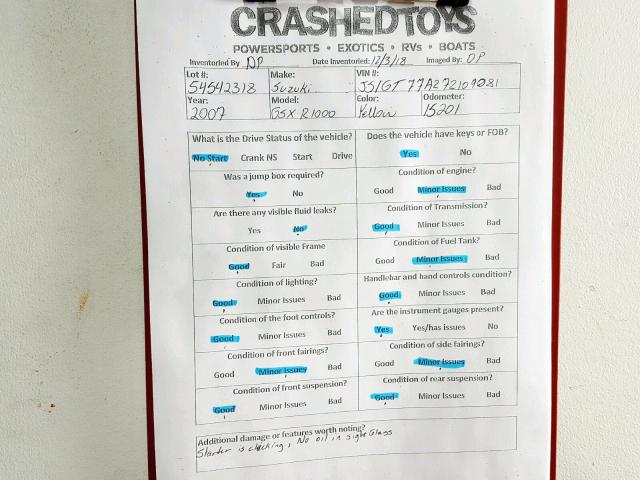 CRASHEDTOYS
POWERSPORTS • EXOTICS • RVs • BOATS
Inventoried By DP Date Inventoried: 12/3/18 Imaged By: DP
Lot #: Make: VIN #:
54542318 Suzuki JS1GT77A272109081
Year: Model: Color: Odometer:
2007 GSX R1000 Yellow 15201
What is the Drive Status of the vehicle? Does the vehicle have keys or FOB?
No Start Crank NS Start Drive Yes No
Was a jump box required? Condition of engine?
Yes No Good Minor Issues Bad
Are there any visible fluid leaks? Condition of Transmission?
Yes No Good Minor Issues Bad
Condition of visible Frame Condition of Fuel Tank?
Good Fair Bad Good Minor Issues Bad
Condition of lighting? Handlebar and hand controls condition?
Good Minor Issues Bad Good Minor Issues Bad
Condition of the foot controls? Are the instrument gauges present?
Good Minor Issues Bad Yes Yes/has issues No
Condition of front fairings? Condition of side fairings?
Good Minor Issues Bad Good Minor Issues Bad
Condition of front suspension? Condition of rear suspension?
Good Minor Issues Bad Good Minor Issues Bad
Additional damage or features worth noting?
Starter is clicking, No oil in sight Glass